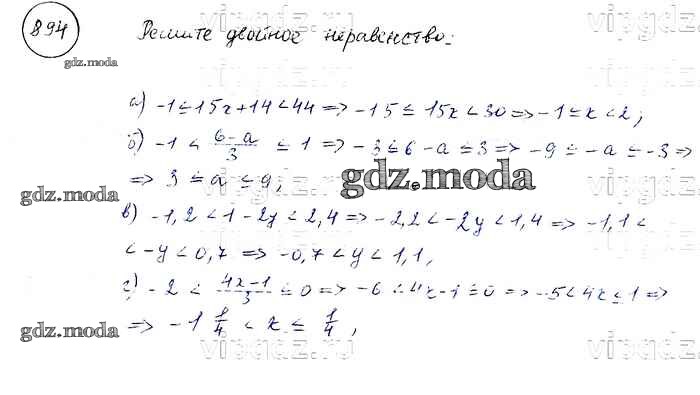 894
Решите двойное неравенство:
gdz.moda
а) -1 ≤ 15x + 14 < 44 => -15 ≤ 15x < 30 => -1 ≤ x < 2;
б) -1 ≤ (6-a)/3 ≤ 1 => -3 ≤ 6 - a ≤ 3 => -9 ≤ -a ≤ -3 =>
=> 3 ≤ a ≤ 9;
gdz.moda
gdz.moda
в) -1,2 < 1 - 2y < 2,4 => -2,2 < -2y < 1,4 => -1,1 <
< -y < 0,7 => -0,7 < y < 1,1,
г) -2 < (4x-1)/3 ≤ 0 => -6 < 4x - 1 ≤ 0 => -5 < 4x ≤ 1 =>
gdz.moda
=> -1 1/4 < x ≤ 1/4,
vipgdz.ru
vipgdz.ru